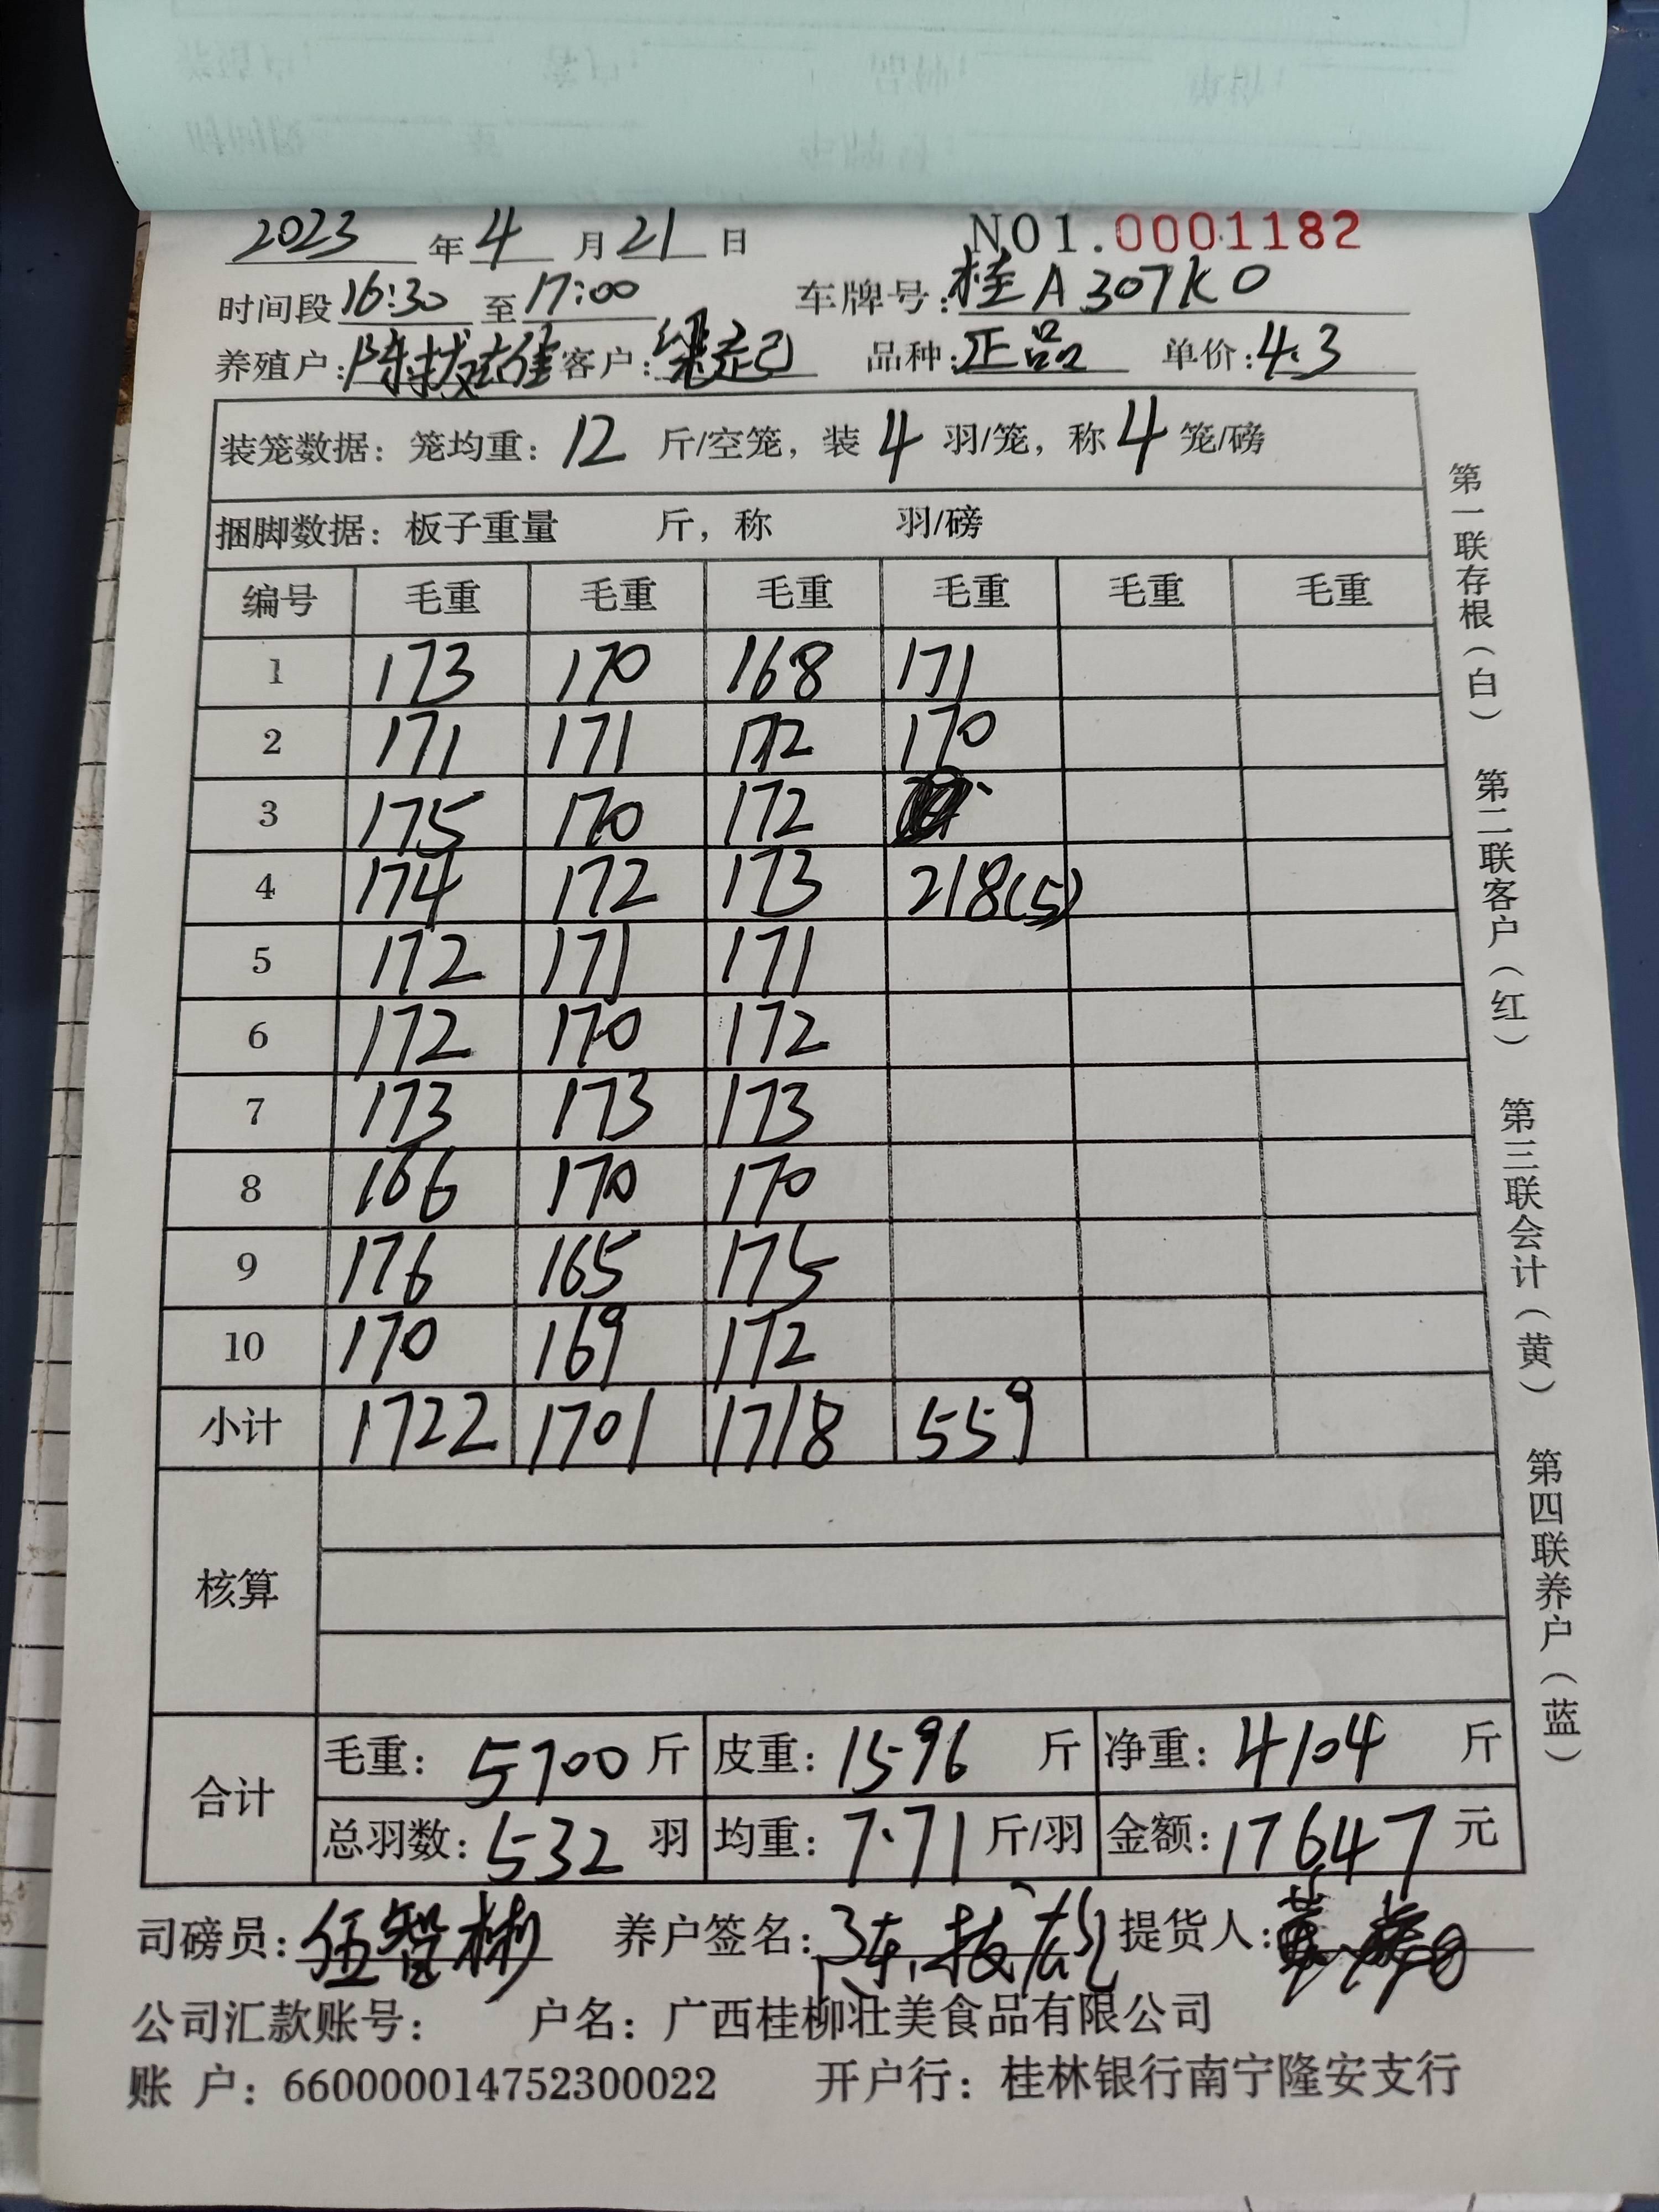 2023 年 4 月 21 日 NO1.0001182
时间段 16:30 至 17:00 车牌号: 桂A307K0
养殖户: 陈拔雄 客户: 梁记 品种: 正品 单价: 4.3
装笼数据: 笼均重: 12 斤/空笼, 装 4 羽/笼, 称 4 笼/磅
捆脚数据: 板子重量 斤, 称 羽/磅
编号 毛重 毛重 毛重 毛重 毛重 毛重
1 173 170 168 171
2 171 171 172 170
3 175 170 172
4 174 172 173 218(5)
5 172 171 171
6 172 170 172
7 173 173 173
8 166 170 170
9 176 165 175
10 170 169 172
小计 1722 1701 1718 559
核算
合计 毛重: 5700 斤 皮重: 1596 斤 净重: 4104 斤
总羽数: 532 羽 均重: 7.71 斤/羽 金额: 17647 元
司磅员: 伍智彬 养户签名: 陈拔雄 提货人:
公司汇款账号: 户名: 广西桂柳壮美食品有限公司
账 户: 660000014752300022 开户行: 桂林银行南宁隆安支行
第一联存根(白) 第二联客户(红) 第三联会计(黄) 第四联养户(蓝)